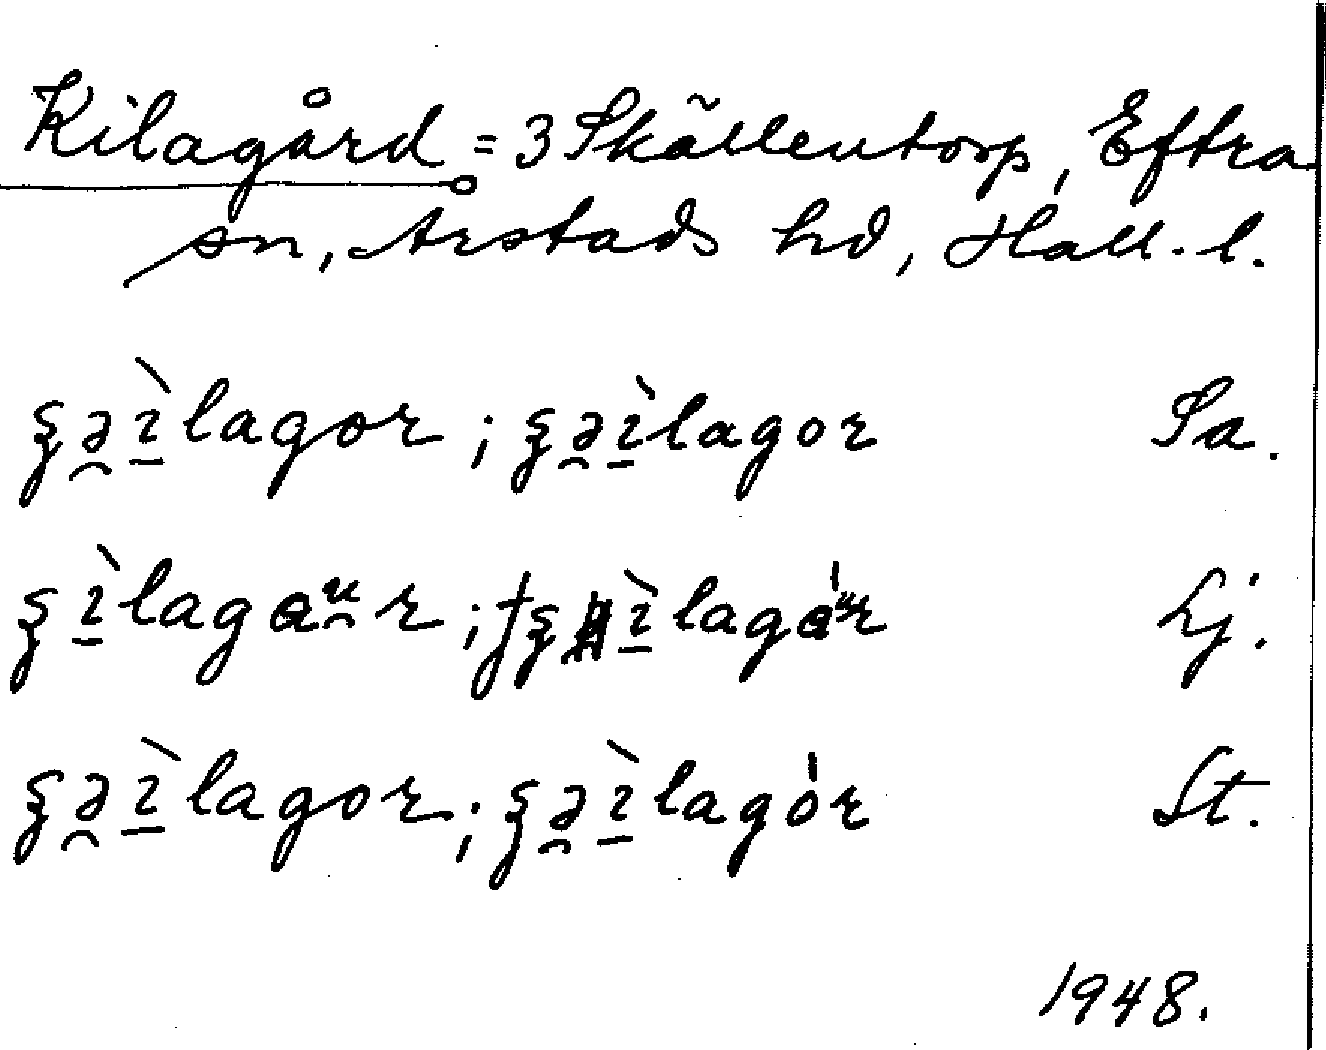 Kilagård = 3 Skällentorp, Eftra
sn, Årstads hd, Hall. l.
ʂə̯ɪ̠̀lagor ; ʂə̯ɪ̠̀lagor Sa.
ʂɪ̠̀lagaᵘ̯r ; †ʂɪ̠̀lagáᵘr Lj.
ʂə̯ɪ̠̀lagor ; ʂə̯ɪ̠̀lagór St.
1948.